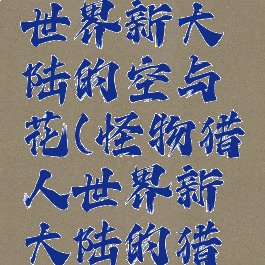 世界新大
陆的空与
花(怪物猎
人世界新
大陆的猎